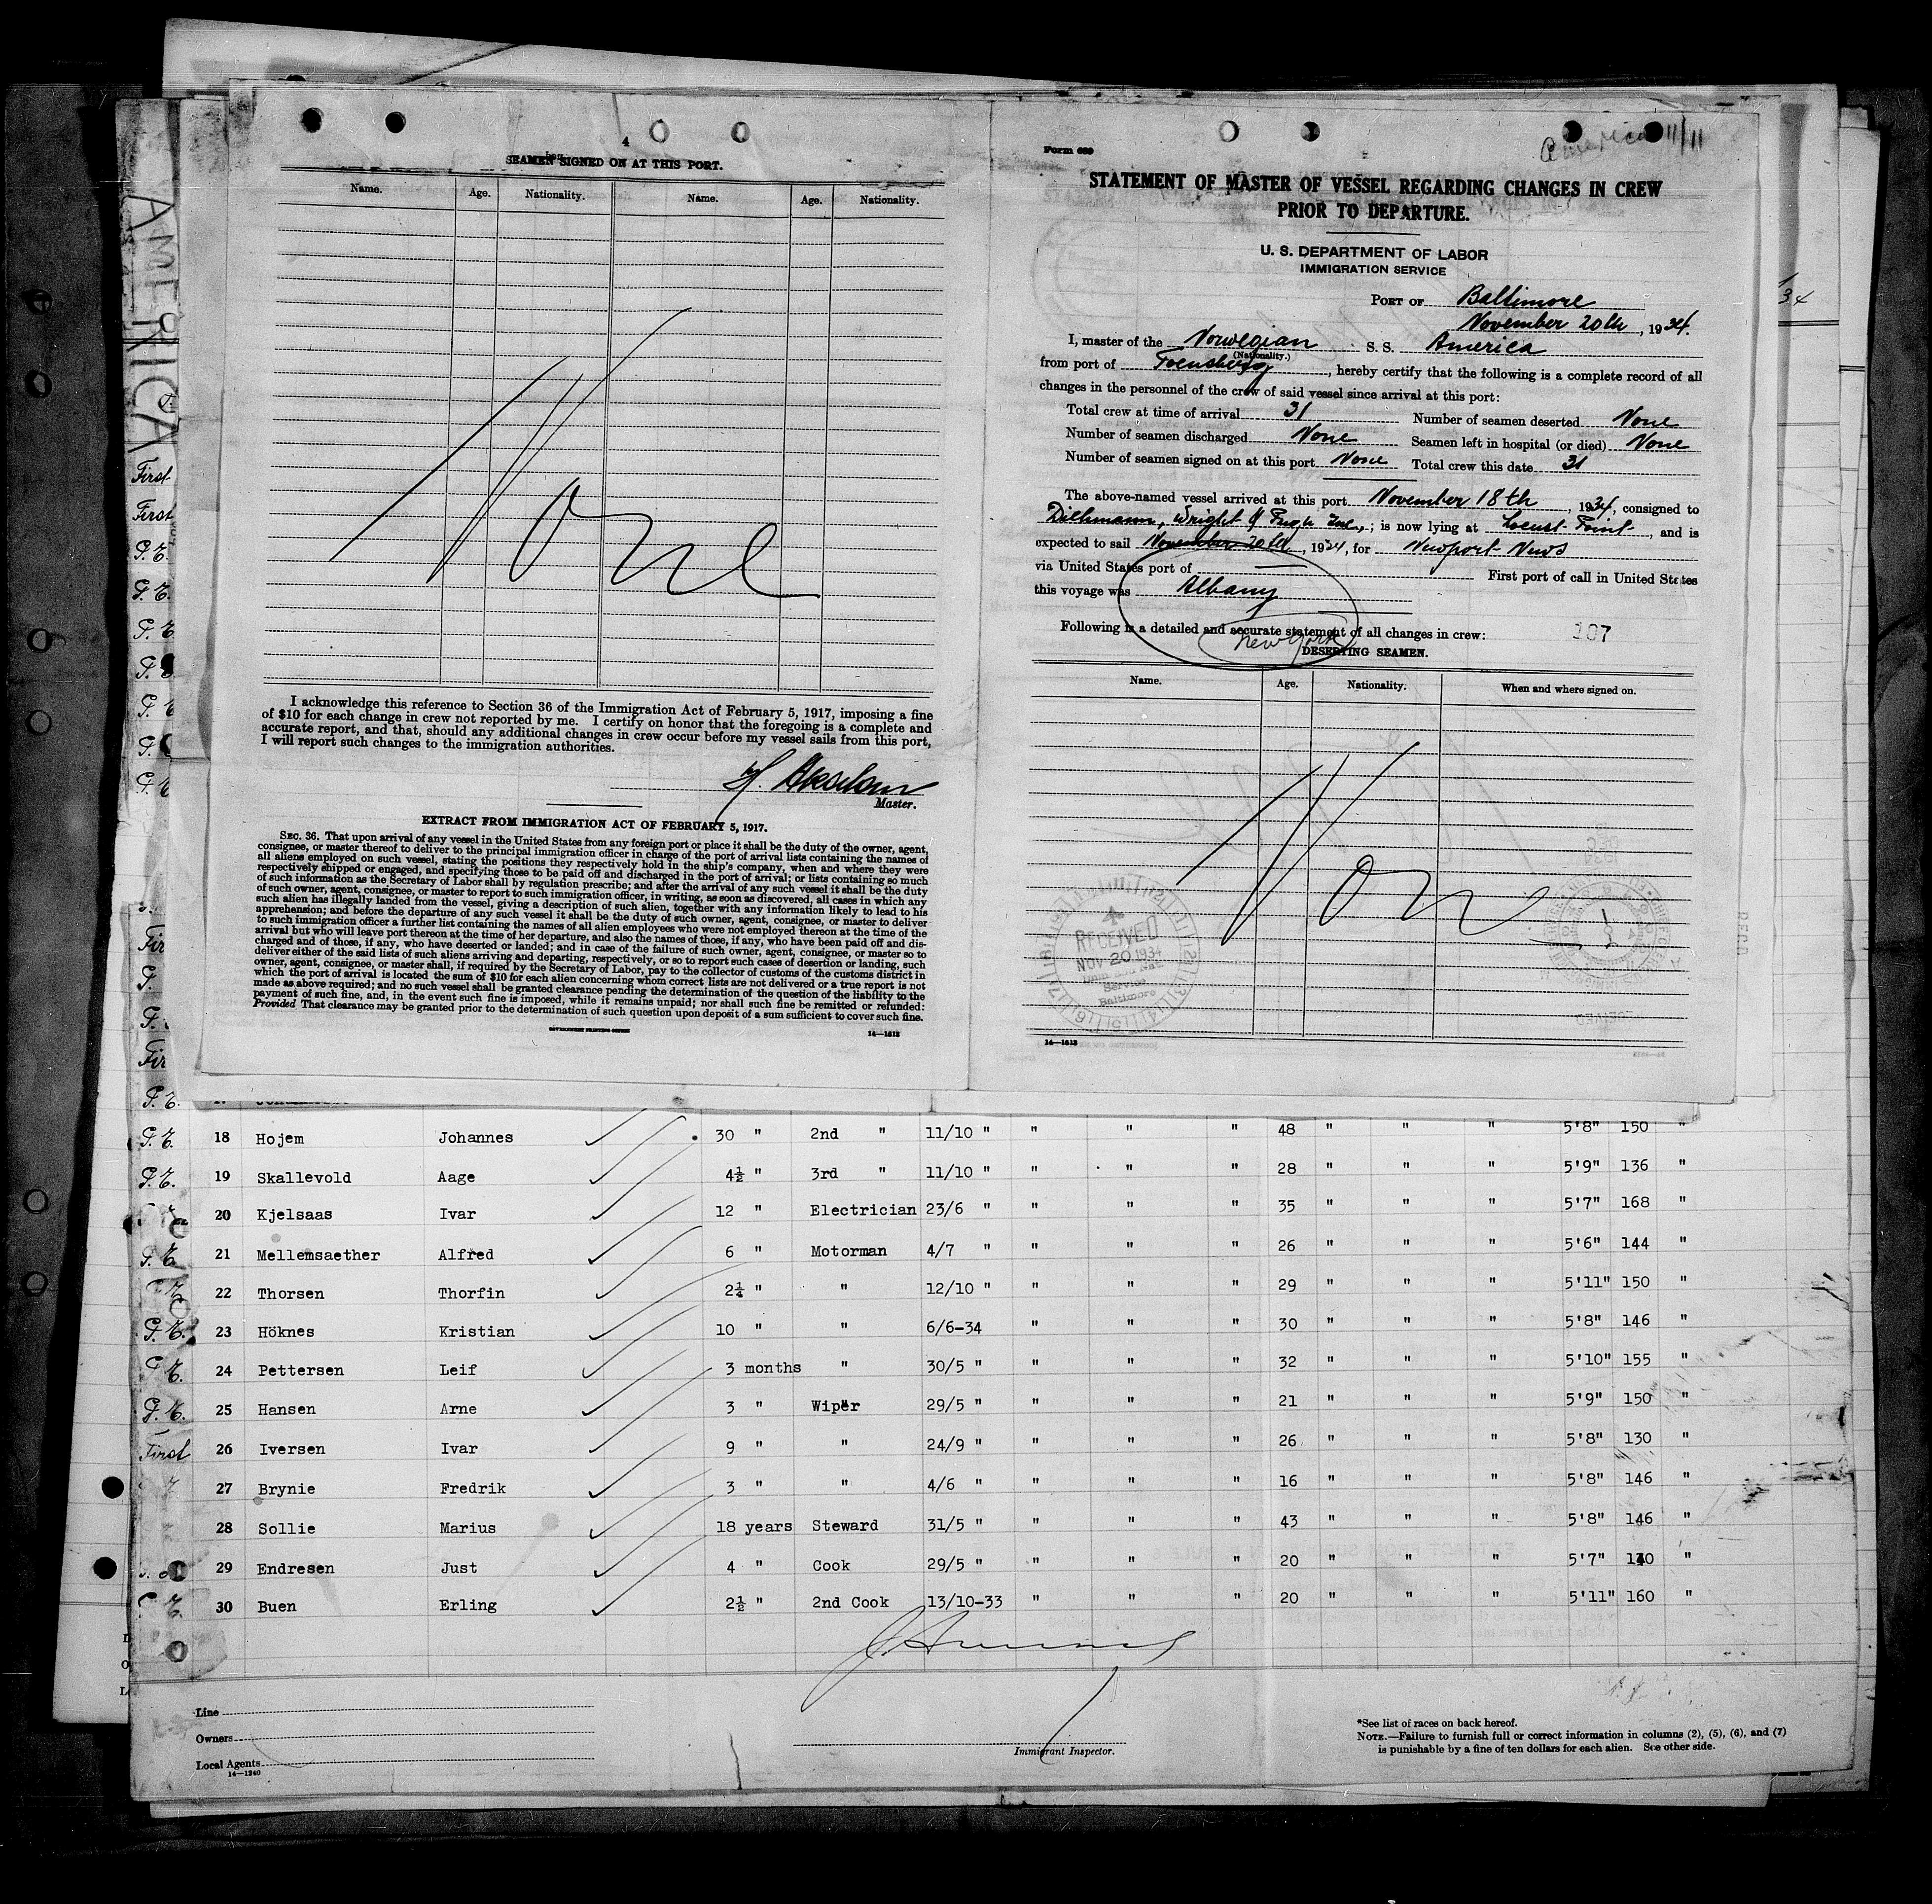 4
SEAMEN SIGNED ON AT THIS PORT.
Name. Age. Nationality. Name. Age. Nationality.
None
I acknowledge this reference to Section 36 of the Immigration Act of February 5, 1917, imposing a fine
of $10 for each change in crew not reported by me. I certify on honor that the foregoing is a complete and
accurate report, and that, should any additional changes in crew occur before my vessel sails from this port,
I will report such changes to the immigration authorities.
Master.
EXTRACT FROM IMMIGRATION ACT OF FEBRUARY 5, 1917.
SEC. 36. That upon arrival of any vessel in the United States from any foreign port or place it shall be the duty of the owner, agent,
consignee, or master thereof to deliver to the principal immigration officer in charge of the port of arrival lists containing the names of
all aliens employed on such vessel, stating the positions they respectively hold in the ship's company, when and where they were
respectively shipped or engaged, and specifying those to be paid off and discharged in the port of arrival; or lists containing so much
of such information as the Secretary of Labor shall by regulation prescribe; and after the arrival of any such vessel it shall be the duty
of such owner, agent, consignee, or master to report to such immigration officer, in writing, as soon as discovered, all cases in which any
such alien has illegally landed from the vessel, giving a description of such alien, together with any information likely to lead to his
apprehension; and before the departure of any such vessel it shall be the duty of such owner, agent, consignee, or master to deliver
to such immigration officer a further list containing the names of all alien employees who were not employed thereon at the time of the
arrival but who will leave port thereon at the time of her departure, and also the names of those, if any, who have been paid off and dis-
charged and of those, if any, who have deserted or landed; and in case of the failure of such owner, agent, consignee, or master so to
deliver either of the said lists of such aliens arriving and departing, respectively, or so to report such cases of desertion or landing, such
owner, agent, consignee, or master shall, if required by the Secretary of Labor, pay to the collector of customs of the customs district in
which the port of arrival is located the sum of $10 for each alien concerning whom correct lists are not delivered or a true report is not
made as above required; and no such vessel shall be granted clearance pending the determination of the question of the liability to the
payment of such fine, and, in the event such fine is imposed, while it remains unpaid; nor shall such fine be remitted or refunded:
Provided That clearance may be granted prior to the determination of such question upon deposit of a sum sufficient to cover such fine.
GOVERNMENT PRINTING OFFICE 14—1613
America 11/11
Form 689
STATEMENT OF MASTER OF VESSEL REGARDING CHANGES IN CREW
PRIOR TO DEPARTURE.
U. S. DEPARTMENT OF LABOR
IMMIGRATION SERVICE
PORT OF Baltimore
November 20th, 1934.
I, master of the Norwegian S. S. America
(Nationality.)
from port of Toensberg, hereby certify that the following is a complete record of all
changes in the personnel of the crew of said vessel since arrival at this port:
Total crew at time of arrival 31 Number of seamen deserted None
Number of seamen discharged None Seamen left in hospital (or died) None
Number of seamen signed on at this port None Total crew this date 31
The above-named vessel arrived at this port November 18th, 1934, consigned to
Dichmann, Wright & Pugh Inc.; is now lying at Locust Point, and is
expected to sail November 20th, 1934, for Newport News
via United States port of — First port of call in United States
this voyage was Albany
New York
Following is a detailed and accurate statement of all changes in crew:
107
DESERTING SEAMEN.
Name. Age. Nationality. When and where signed on.
None
RECEIVED
NOV 20 1934
Service
Baltimore
14—1613
AMERICA
18 Hojem Johannes 30 " 2nd " 11/10 " " " " 48 " " " 5'8" 150 "
19 Skallevold Aage 4½ " 3rd " 11/10 " " " " 28 " " " 5'9" 136 "
20 Kjelsaas Ivar 12 " Electrician 23/6 " " " " 35 " " " 5'7" 168 "
21 Mellemsaether Alfred 6 " Motorman 4/7 " " " " 26 " " " 5'6" 144 "
22 Thorsen Thorfin 2¼ " " 12/10 " " " " 29 " " " 5'11" 150 "
23 Höknes Kristian 10 " " 6/6-34 " " " 30 " " " 5'8" 146 "
24 Pettersen Leif 3 months " 30/5 " " " " 32 " " " 5'10" 155 "
25 Hansen Arne 3 " Wiper 29/5 " " " " 21 " " " 5'9" 150 "
First 26 Iversen Ivar 9 " " 24/9 " " " " 26 " " " 5'8" 130 "
27 Brynie Fredrik 3 " " 4/6 " " " " 16 " " " 5'8" 146 "
28 Sollie Marius 18 years Steward 31/5 " " " " 43 " " " 5'8" 146 "
29 Endresen Just 4 " Cook 29/5 " " " " 20 " " " 5'7" "
30 Buen Erling 2½ " 2nd Cook 13/10-33 " " " 20 " " " 5'11" 160 "
Line
Owners
Local Agents
14—1240
Immigrant Inspector.
*See list of races on back hereof.
NOTE.—Failure to furnish full or correct information in columns (2), (5), (6), and (7)
is punishable by a fine of ten dollars for each alien. See other side.